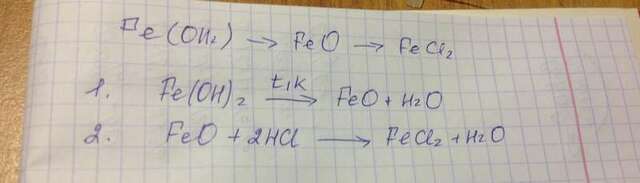 Fe(OH₂) → FeO → FeCl₂
1. Fe(OH)₂ →(t,k) FeO + H₂O
2. FeO + 2HCl → FeCl₂ + H₂O